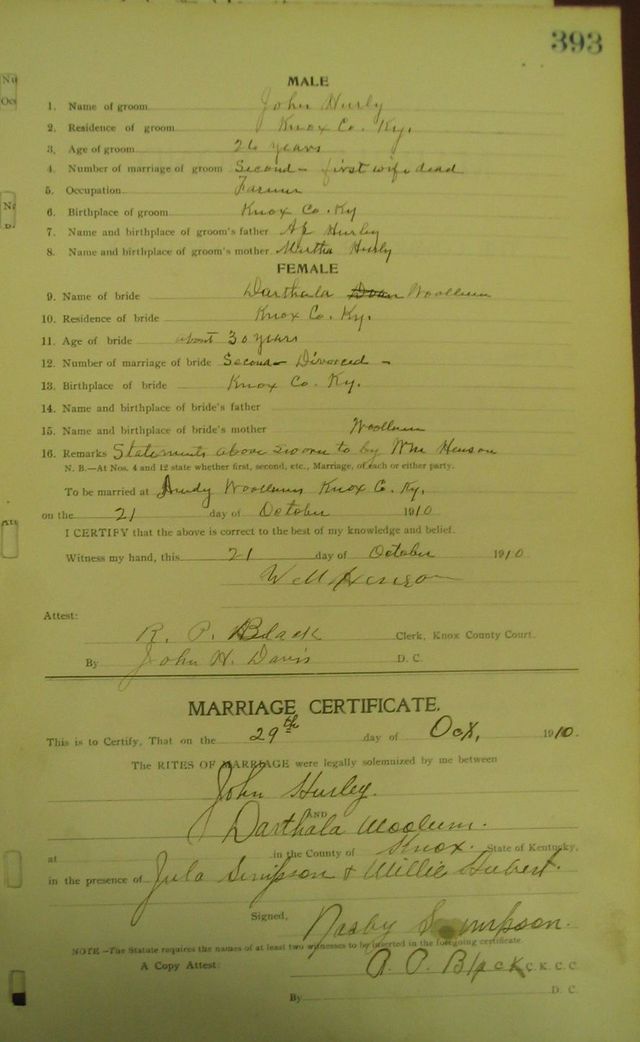 393
MALE
1. Name of groom John Hurly
2. Residence of groom Knox Co. Ky.
3. Age of groom 26 years
4. Number of marriage of groom Second - first wife dead
5. Occupation Farmer
6. Birthplace of groom Knox Co. Ky
7. Name and birthplace of groom's father Hurley
8. Name and birthplace of groom's mother Martha Hurly
FEMALE
9. Name of bride Darthala Woollum
10. Residence of bride Knox Co. Ky.
11. Age of bride about 30 years
12. Number of marriage of bride Second - Divorced -
13. Birthplace of bride Knox Co. Ky.
14. Name and birthplace of bride's father
15. Name and birthplace of bride's mother Woollum
16. Remarks Statements above sworn to by Wm Henson
N. B.—At Nos. 4 and 12 state whether first, second, etc., Marriage, of each or either party.
To be married at Woollums Knox Co. Ky.
on the 21 day of October 1910
I CERTIFY that the above is correct to the best of my knowledge and belief.
Witness my hand, this 21 day of October 1910
W M Henson
Attest:
R. P. Black Clerk, Knox County Court.
By John H. Davis D. C.
MARRIAGE CERTIFICATE.
This is to Certify, That on the 29th day of Oct, 1910.
The RITES OF MARRIAGE were legally solemnized by me between
John Hurley.
AND
Darthala Woolum.
at in the County of Knox. State of Kentucky,
in the presence of Jula Simpson & Willie Hubert.
Signed, Nasby Simpson.
NOTE—The Statute requires the names of at least two witnesses to be inserted in the foregoing certificate
A Copy Attest: R. P. Black C. K. C. C.
By D. C.